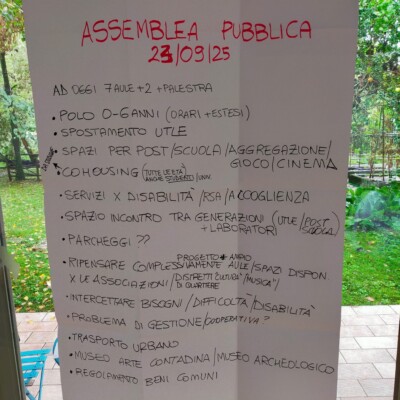 ASSEMBLEA PUBBLICA
23/09/25
AD OGGI 7 AULE +2 +PALESTRA
• POLO 0-6 ANNI (ORARI +ESTESI)
• SPOSTAMENTO UTLE
• SPAZI PER POST/SCUOLA/AGGREGAZIONE/
GIOCO/CINEMA
• COHOUSING (TUTTE LE ETÀ/
ANCHE STUDENTI/UNIV.
• SERVIZI X DISABILITÀ/RSA/ACCOGLIENZA
• SPAZIO INCONTRO TRA GENERAZIONI (UTLE/POST
SCUOLA
+LABORATORI
• PARCHEGGI ??
PROGETTO + AMPIO
• RIPENSARE COMPLESSIVAMENTE AULE/SPAZI DISPON.
X LE ASSOCIAZIONI/DISTRETTI CULTURA/MUSICA/
DI QUARTIERE
• INTERCETTARE BISOGNI/DIFFICOLTÀ/DISABILITÀ
• PROBLEMA DI GESTIONE/COOPERATIVA?
• TRASPORTO URBANO
• MUSEO ARTE CONTADINA/MUSEO ARCHEOLOGICO
• REGOLAMENTO BENI COMUNI